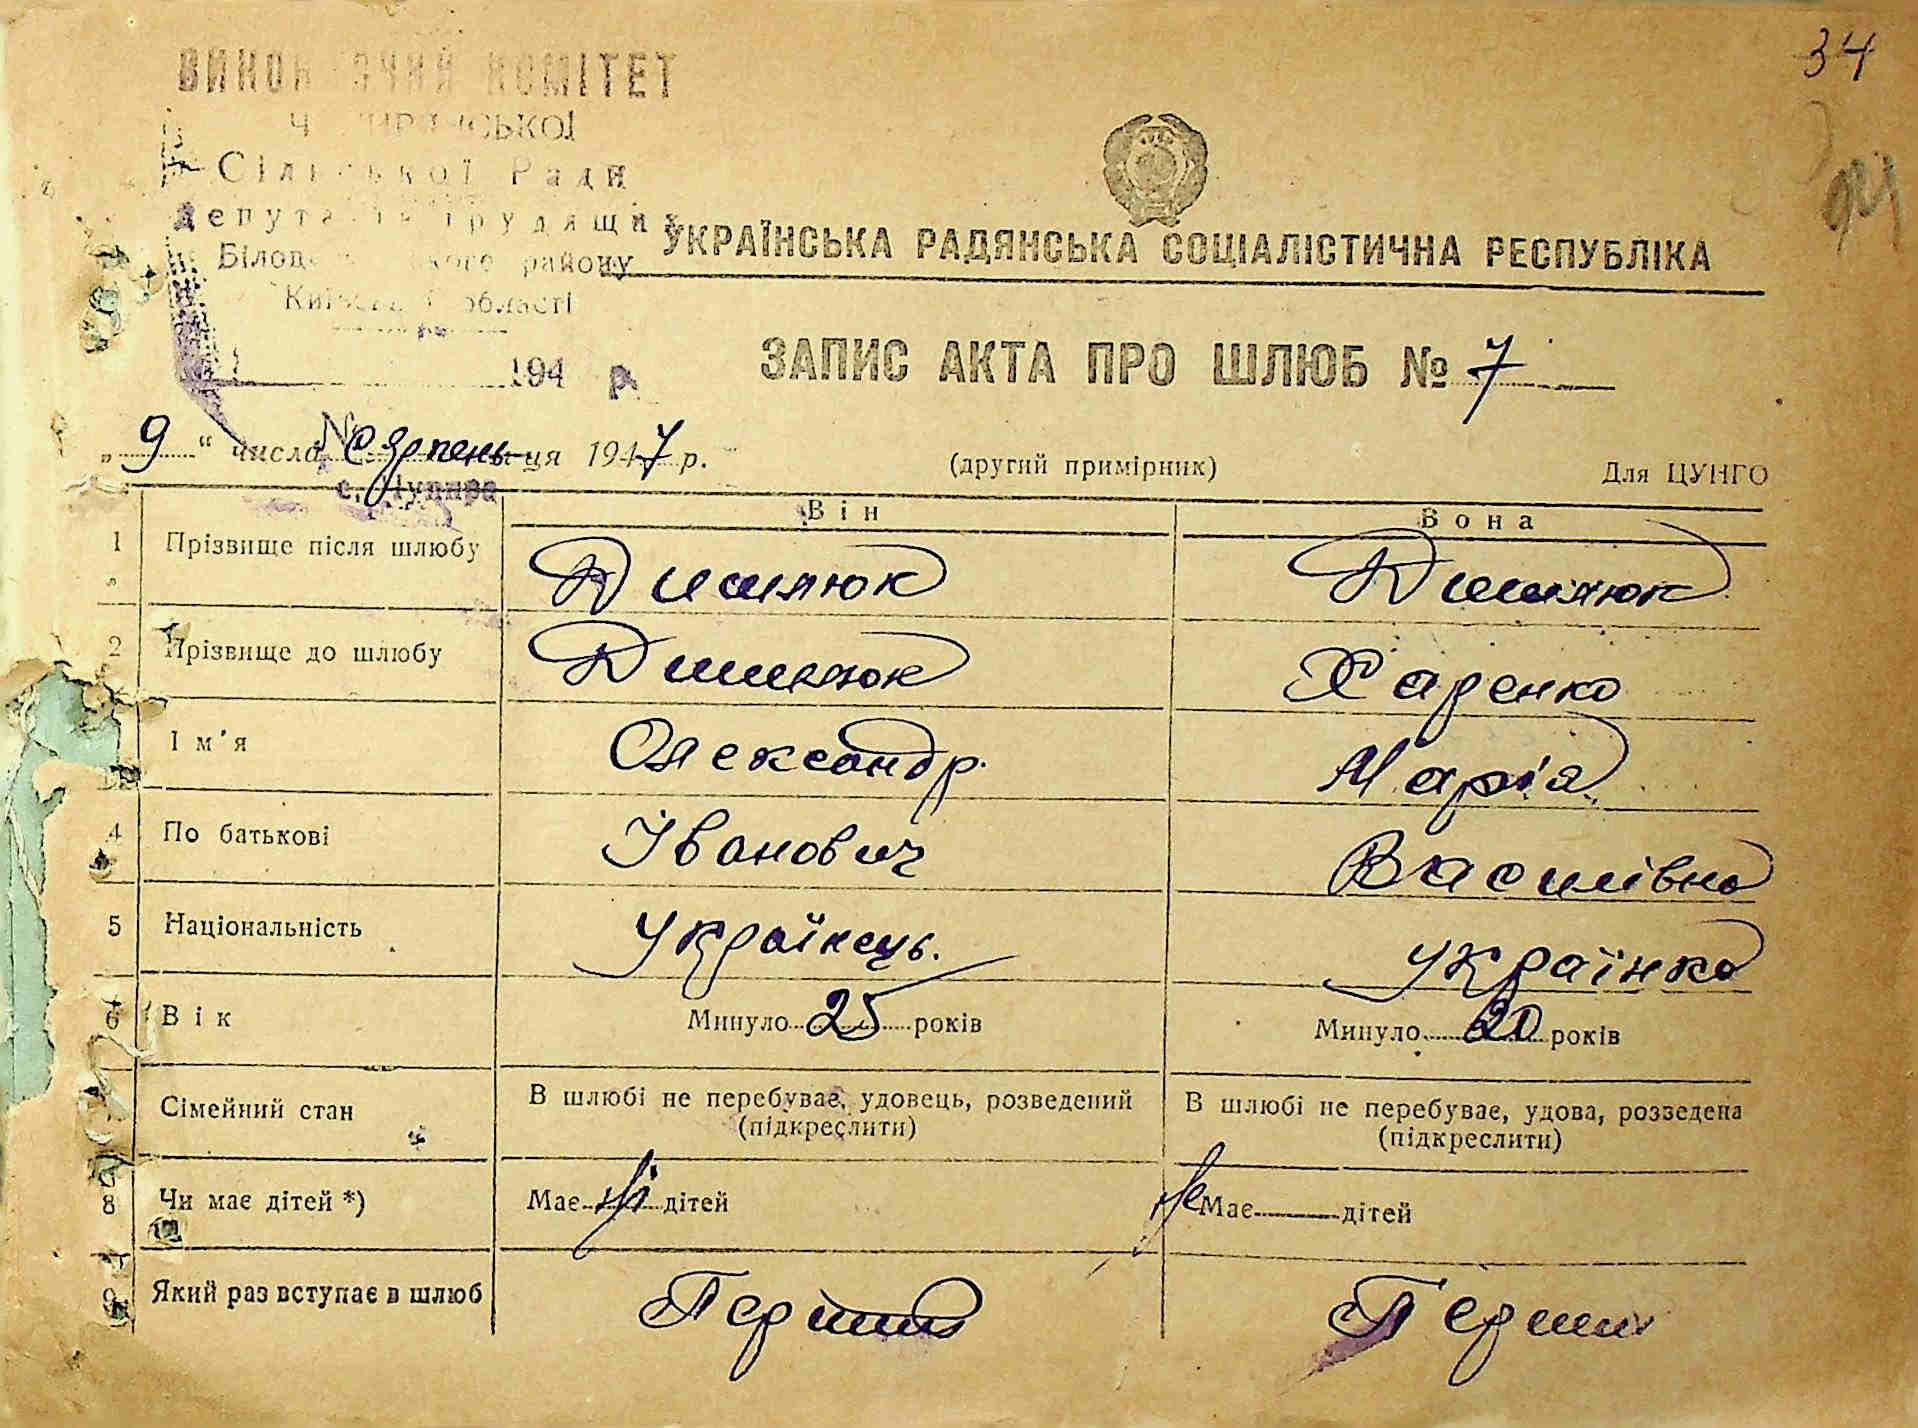 34
ВИКОНАВЧИЙ КОМІТЕТ
Сільської Ради
депутатів трудящих
району
Київської області
194 р.
УКРАЇНСЬКА РАДЯНСЬКА СОЦІАЛІСТИЧНА РЕСПУБЛІКА
ЗАПИС АКТА ПРО ШЛЮБ № 7
„ 9 “ числа серпень ця 1947 р.
(другий примірник) Для ЦУНГО
Він Вона
1 Прізвище після шлюбу
2 Прізвище до шлюбу Харенко
Ім'я Олександр Марія
4 По батькові Іванович Василівна
5 Національність Українець. Українка
6 Вік Минуло 25 років Минуло 20 років
Сімейний стан В шлюбі не перебуває, удовець, розведений В шлюбі не перебуває, удова, розведена
(підкреслити) (підкреслити)
8 Чи має дітей *) Має дітей не Має дітей
9 Який раз вступає в шлюб Перший Перший